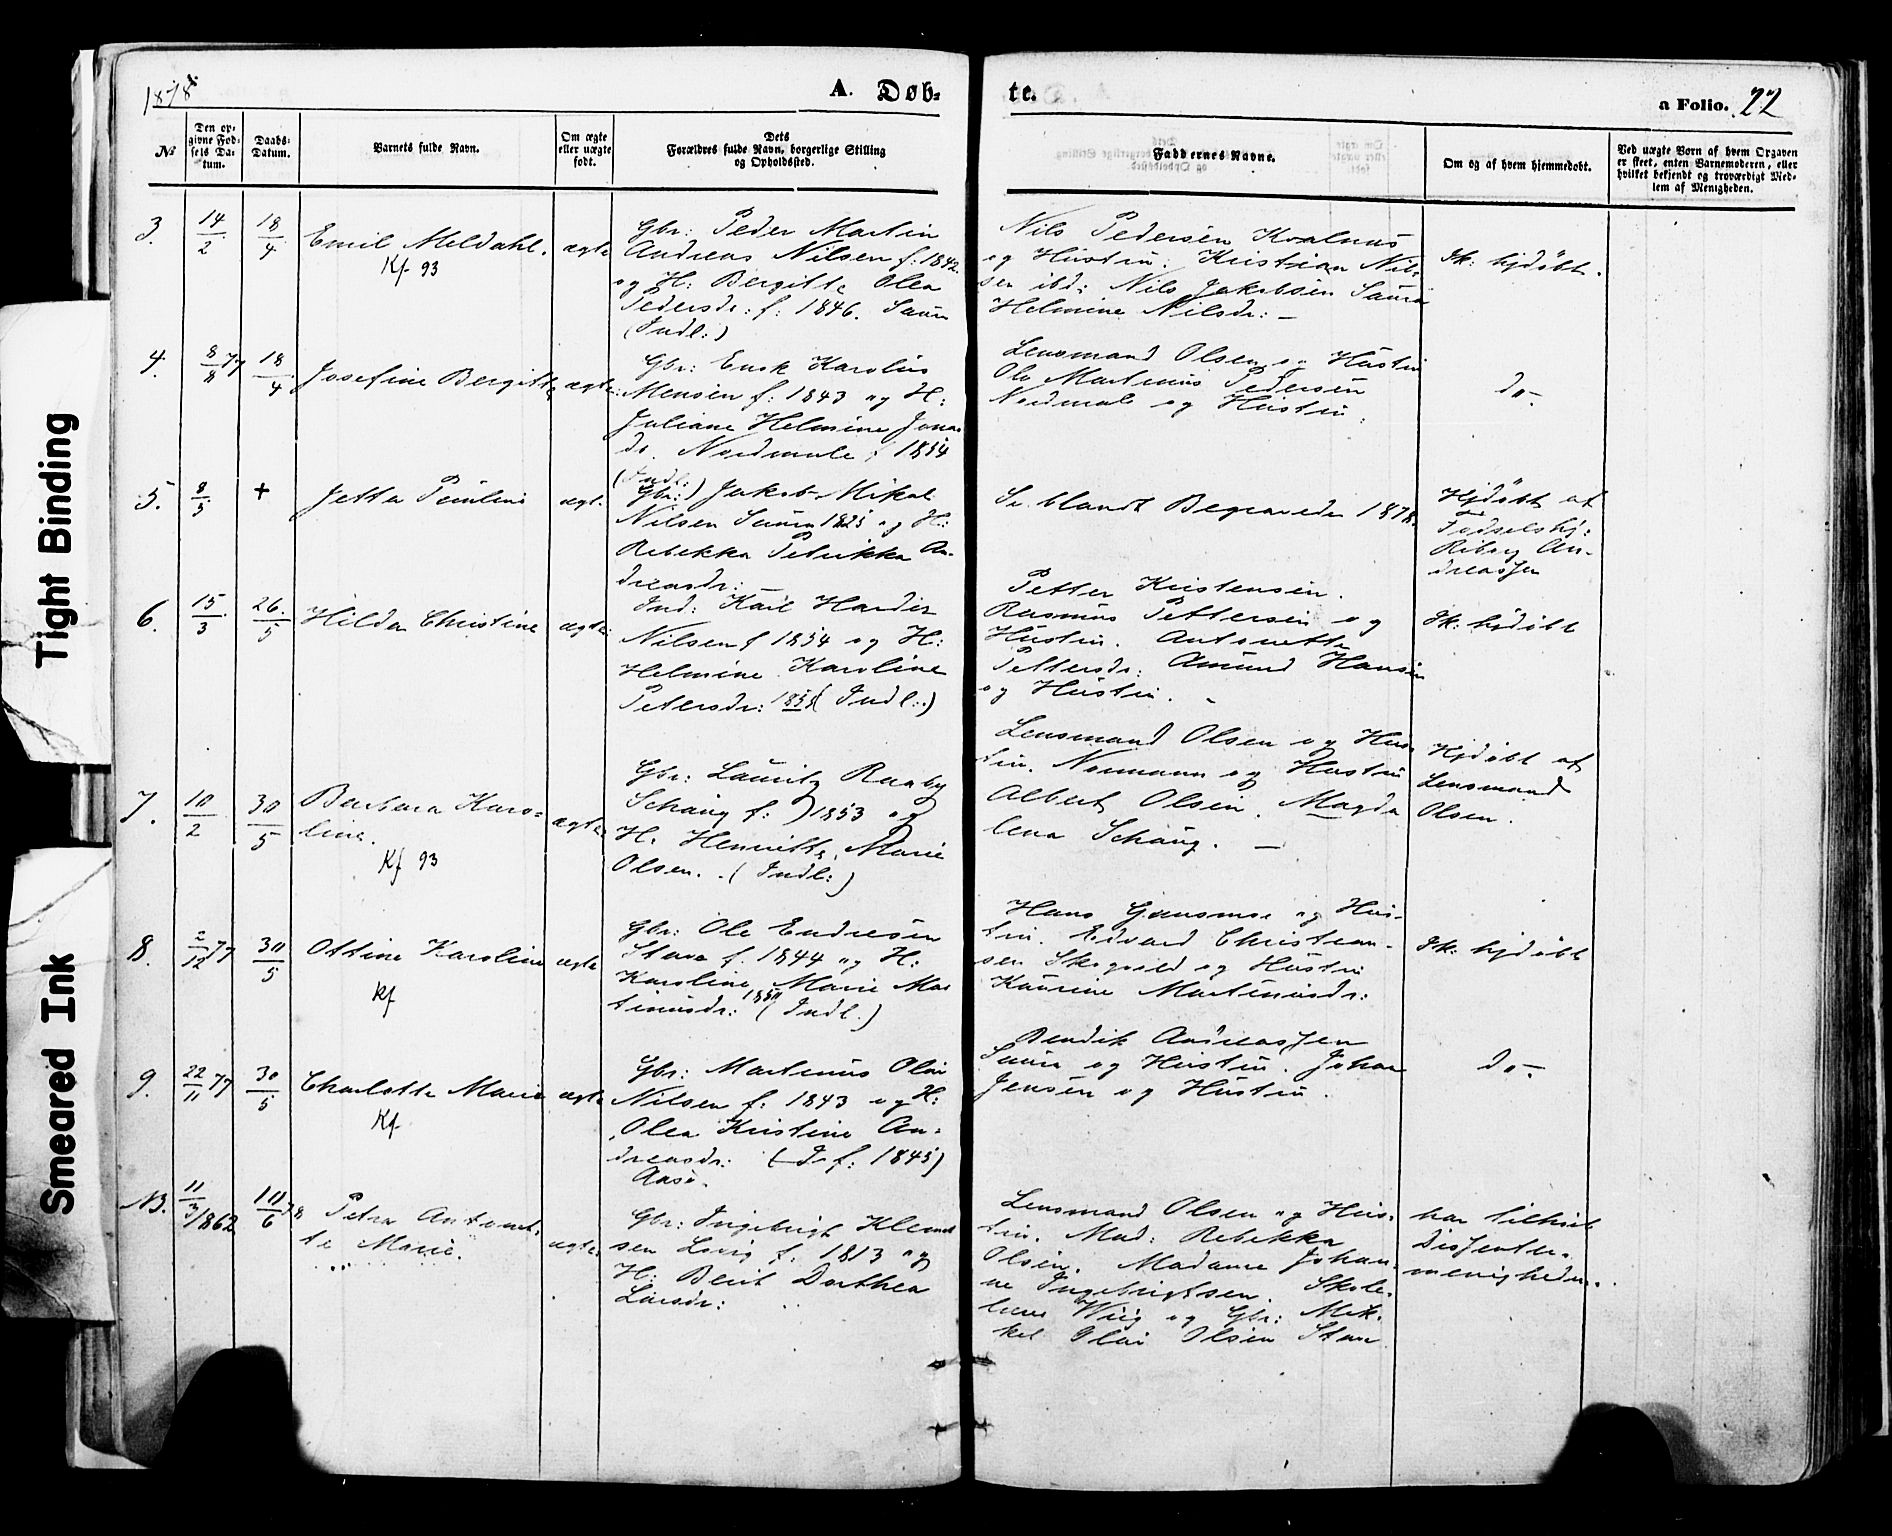 1878
A. Døb-
te.
a Folio. 22
№
Den op-
givne Fød-
sels Da-
tum.
Daabs-
Datum.
Barnets fulde Navn.
Om ægte
eller uægte
født.
Dets
Forældres fulde Navn, borgerlige Stilling
og Opholdssted.
Faddernes Navne.
Om og af hvem hjemmedøbt.
Ved uægte Børn af hvem Opgaven
er skeet, enten Barnemoderen, eller
hvilket bekjendt og troværdigt Med-
lem af Menigheden.
3.
14/2
18/4
Emil Meldahl.
Kf 93
ægte
Gbr: Peder Martin
Andreas Nilsen f: 1842
og H: Bergitte Olea
Pedersdr: f: 1846. Saura
(Indl:)
Nils Pedersen Kvalnæs
og Hustru. Kristian Nil-
sen ibd: Nils Jakobsen Saura
Helmine Nilsdr: —
Ik: hjdøbt.
4.
8/8 77
18/4
Josefine Bergitte
ægte
Gbr: Enok Karolius
Mensen f: 1843 og H:
Juliane Helmine Jona
dr. Nordmule f 1854
(Indl:)
Lensmand Olsen og Hustru
Ole Martinus Pedersen
Nordmule og Hustru.
do-
5.
8/5
+
Jetta Pauline
ægt.
Gbr: Jakob Mikal
Nilsen Saura 1825 og H:
Rebekka Petrikka An-
dreasdr:
Se blandt Begravede 1878.
Hjdøbt af
Fødselshj:
Riborg An-
dreassen
6.
15/3
26/5
Hilda Christine
ægte
Ind: Karl Harder
Nilsen f 1854 og H:
Helmine Karoline
Petersdr: 1855 (Indl:)
Petter Kristensen.
Rasmus Pettersen og
Hustru. Antonette
Pettersdr: Amund Hansen
og Hustru.
Ik: hjdøbt
7.
10/2
30/5
Barbara Karo-
line.
Kf 93
ægte
Gbr: Lauritz Raaby
Schang f: 1853 og
H. Henritte Marie
Olsen. (Indl:)
Lensmand Olsen og Hus-
tru. Normann og Hustru
Albert Olsen. Magda
lena Schang. —
Hjdøbt af
Lensmand
Olsen.
8.
2/12 77
30/5
Ottine Karoline
Kf
ægte
Gbr: Ole Endresen
Stave f. 1844 og H:
Karoline Marie Mar
tinusdr: 1850 (Indl.)
Hans Gausmoe og Hus-
tru. Edvard Christian-
sen Skogvold og Hustru
Kaurine Martinusdr:
Ik: hjdøbt
9.
22/11 77
30/5
Charlotte Marie
Kf
ægte
Gbr: Martinus Olai
Nilsen f: 1843 og H:
Olea Kristine An-
dreasdr: (I: f: 1845)
Aase.
Bendik Andreassen
Saura og Hustru. Johan
Jensen og Hustru.
do-
NB.
11/3 1862
10/6 78
Petra Antonet-
te Marie.
ægte
Gbr: Ingebrigt Klemet
sen Lovig f. 1813 og
H: Berit Dorthea
Larsdr:
Lensmand Olsen og Hus-
tru. Mad: Rebekka
Olsen. Madame Johan-
ne Ingebrigtsen. Skole-
lærer Wiig og Gbr: Mik-
kel Olai Olsen Stave
har tilhørt
Dissenter-
menigheden.
Tight Binding
Smeared Ink